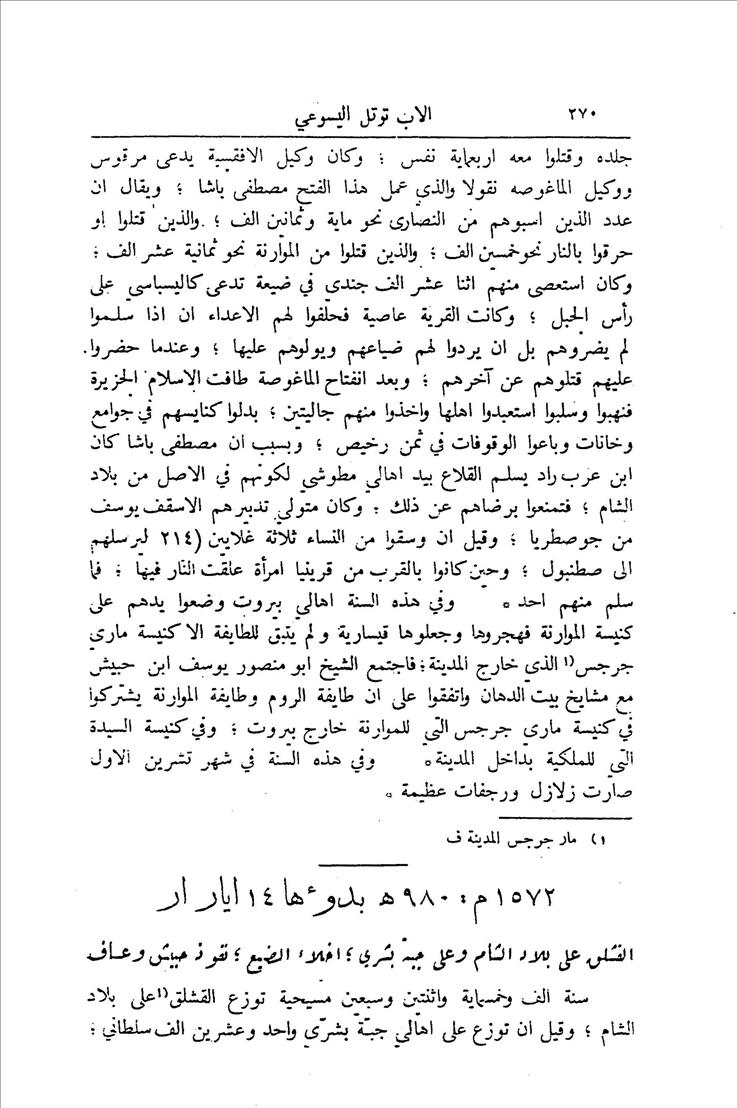 ٢٧٠ الاب توتل اليسوعي
جلده وقتلوا معه اربعماية نفس ؛ وكان وكيل الافقسية يدعى مرقوس
ووكيل الماغوصه نقولا والذي عمل هذا الفتح مصطفى باشا ؛ ويقال ان
عدد الذين اسبوهم من النصارى نحو ماية وثمانين الف ؛ والذين قتلوا او
حرقوا بالنار نحو خمسين الف ؛ والذين قتلوا من الموارنة نحو ثمانية عشر الف ؛
وكان استعصى منهم اثنا عشر الف جندي في ضيعة تدعى كاليسباسي على
رأس الجبل ؛ وكانت القرية عاصية فحلفوا لهم الاعداء ان اذا سلموا
لم يضروهم بل ان يردوا لهم ضياعهم ويولوهم عليها ؛ وعندما حضروا
عليهم قتلوهم عن آخرهم ؛ وبعد انفتاح الماغوصة طافت الاسلام الجزيرة
فنهبوا وسلبوا استعبدوا اهلها واخذوا منهم جاليتين ؛ بدلوا كنايسهم في جوامع
وخانات وباعوا الوقوفات في ثمن رخيص ؛ وبسبب ان مصطفى باشا كان
ابن عرب راد يسلم القلاع بيد اهالي مطوشي لكونهم في الاصل من بلاد
الشام ؛ فتمنعوا برضاهم عن ذلك . وكان متولي تدبيرهم الاسقف يوسف
من جوصطريا ؛ وقيل ان وسقوا من النساء ثلاثة غلايين (٢١٤ ليرسلهم
الى صطنبول ؛ وحين كانوا بالقرب من قرينيا امرأة علقت النار فيها ؛ فما
سلم منهم احد ۰ وفي هذه السنة اهالي بيروت وضعوا يدهم على
كنيسة الموارنة فهجروها وجعلوها قيسارية ولم يتبق للطايفة الا كنيسة ماري
جرجس(١ الذي خارج المدينة ؛ فاجتمع الشيخ ابو منصور يوسف ابن حبيش
مع مشايخ بيت الدهان واتفقوا على ان طايفة الروم وطايفة الموارنة يشتركوا
في كنيسة ماري جرجس التي للموارنة خارج بيروت ؛ وفي كنيسة السيدة
التي للملكية بداخل المدينة ۰ وفي هذه السنة في شهر تشرين الاول
صارت زلازل ورجفات عظيمة ۰
١) مار جرجس المدينة ف
١٥٧٢ م : ٩٨٠ ه بدوءها ١٤ ايار ار
القشلق على بلاد الشام وعلى جبة بشري ؛ اخلاء الضيع ؛ نفوذ حبيش وعساف
سنة الف وخمسماية واثنتين وسبعين مسيحية توزع القشلق(١ على بلاد
الشام ؛ وقيل ان توزع على اهالي جبّة بشرّي واحد وعشرين الف سلطاني ؛